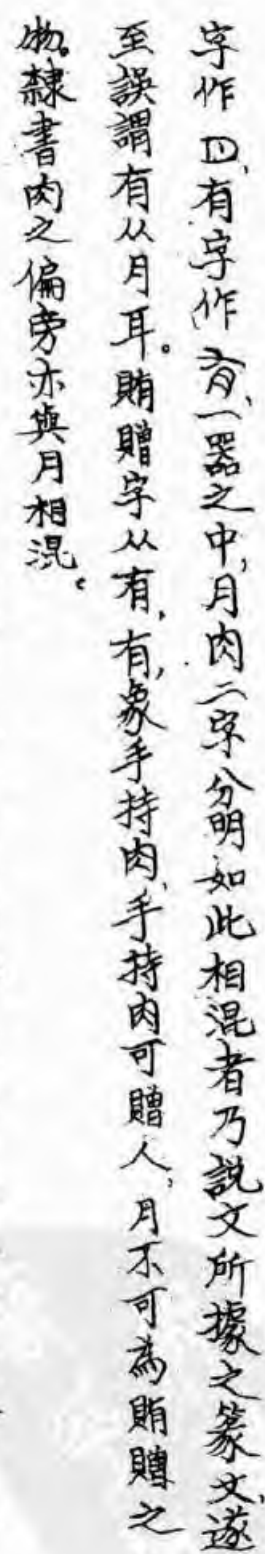 字作𝌆，有字作，一器之中，月肉二字分明如此相混者乃說文所據之篆文，遂
至誤謂有从月耳。賄贈字从有，有，象手持肉，手持肉可贈人，月不可為賄贈之
物。隸書肉之偏旁亦與月相混。